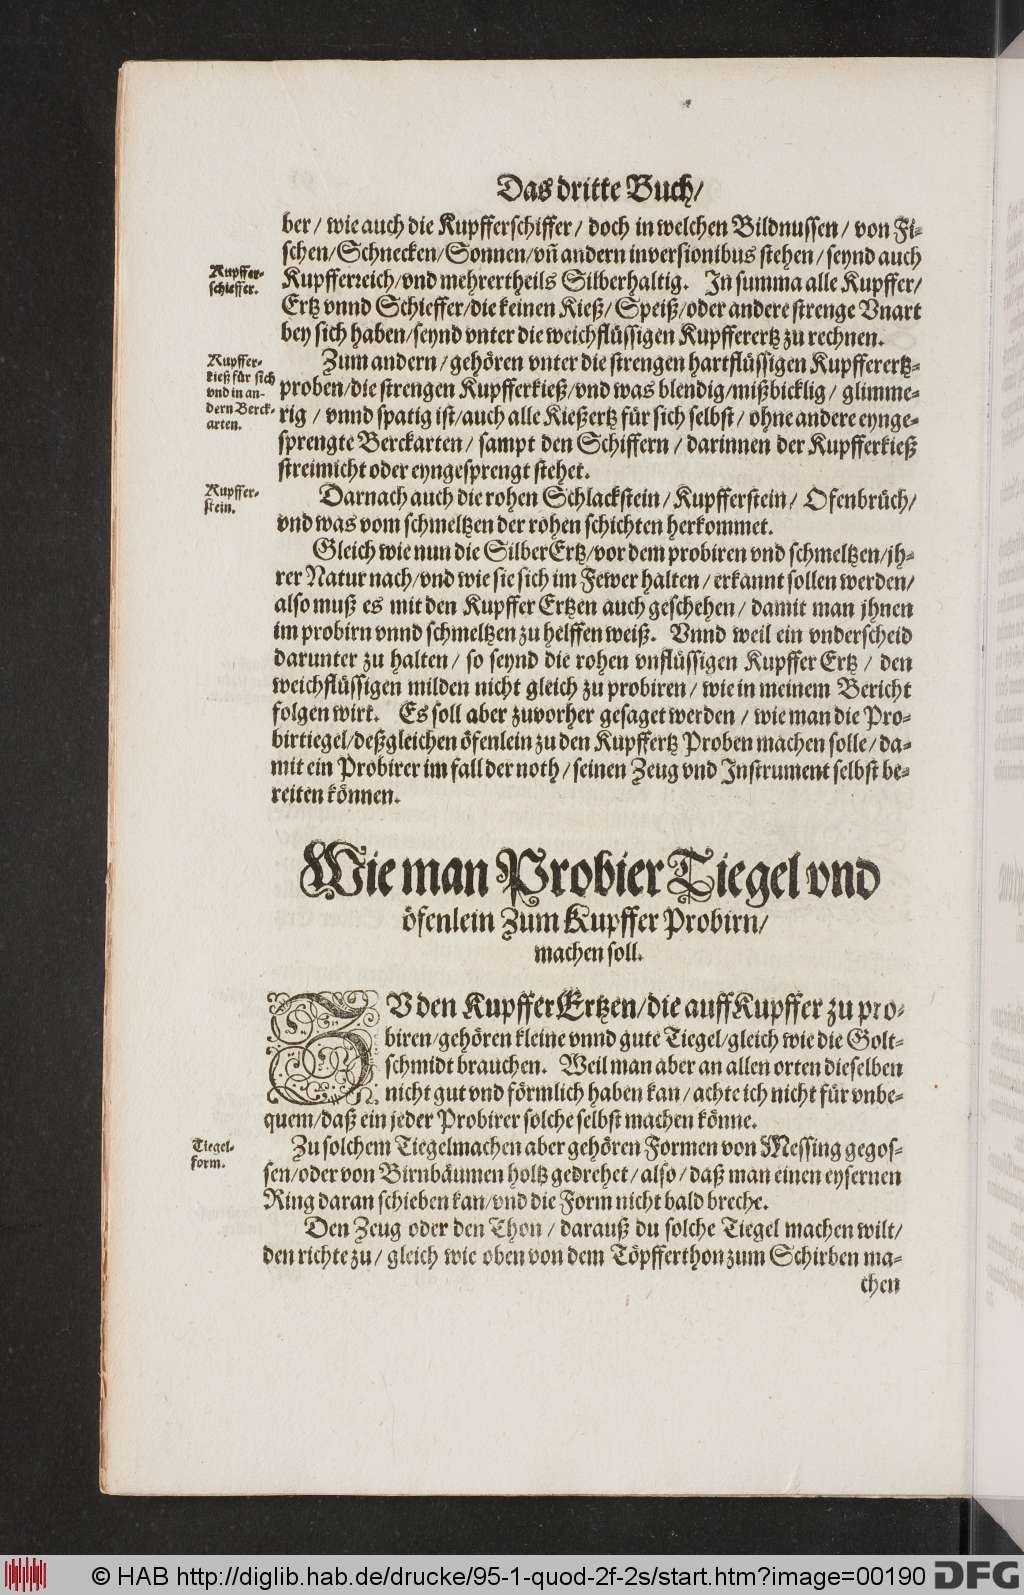 Das dritte Buch/
ber/ wie auch die Kupfferschiffer/ doch in welchen Bildnussen/ von Fi-
schen/Schnecken/Sonnen/vñ andern inversionibus stehen/ seynd auch
Kupffer-
schieffer.
Kupfferreich/vnd mehrertheils Silberhaltig. In summa alle Kupffer/
Ertz vnnd Schieffer/die keinen Kieß/ Speiß/oder andere strenge Vnart
bey sich haben/seynd vnter die weichflüssigen Kupffererertz zu rechnen.
Kupffer-
kieß für sich
vnd in an-
dern Berck-
arten.
Zum andern/ gehören vnter die strengen hartflüssigen Kupffererertz-
proben/die strengen Kupfferkieß/vnd was blendig/mißbicklig/ glimme-
rig/ vnnd spatig ist/auch alle Kießertz für sich selbst/ ohne andere eynge-
sprengte Berckarten/ sampt den Schiffern/ darinnen der Kupfferkieß
streimicht oder eyngesprengt stehet.
Kupffer-
stein.
Darnach auch die rohen Schlackstein/ Kupfferstein/ Ofenbrüch/
vnd was vom schmeltzen der rohen schichten herkommet.
Gleich wie nun die Silber Ertz/vor dem probiren vnd schmeltzen/jh-
rer Natur nach/vnd wie sie sich im Fewer halten/ erkannt sollen werden/
also muß es mit den Kupffer Ertzen auch geschehen/ damit man jhnen
im probirn vnnd schmeltzen zu helffen weiß. Vnnd weil ein vnderscheid
darunter zu halten/ so seynd die rohen vnflüssigen Kupffer Ertz/ den
weichflüssigen milden nicht gleich zu probiren/ wie in meinem Bericht
folgen wirt. Es soll aber zuvorher gesaget werden/ wie man die Pro-
birtiegel/deßgleichen öfenlein zu den Kupffertz Proben machen solle/ da-
mit ein Probirer im fall der noth/ seinen Zeug vnd Instrument selbst be-
reiten können.
Wie man Probier Tiegel vnd
öfenlein Zum Kupffer Probirn/
machen soll.
ZV den Kupffer Ertzen/die auff Kupffer zu pro-
biren/gehören kleine vnnd gute Tiegel/gleich wie die Golt-
schmidt brauchen. Weil man aber an allen orten dieselben
nicht gut vnd förmlich haben kan/ achte ich nicht für vnbe-
quem/daß ein jeder Probirer solche selbst machen könne.
Tiegel-
form.
Zu solchem Tiegelmachen aber gehören Formen von Messing gegos-
sen/oder von Birnbäumen holtz gedrehet/ also/ daß man einen eysernen
Ring daran schieben kan/vnd die Form nicht bald breche.
Den Zeug oder den Thon/ darauß du solche Tiegel machen wilt/
den richte zu/ gleich wie oben von dem Töpfferthon zum Schirben ma-
chen
© HAB http://diglib.hab.de/drucke/95-1-quod-2f-2s/start.htm?image=00190
DFG